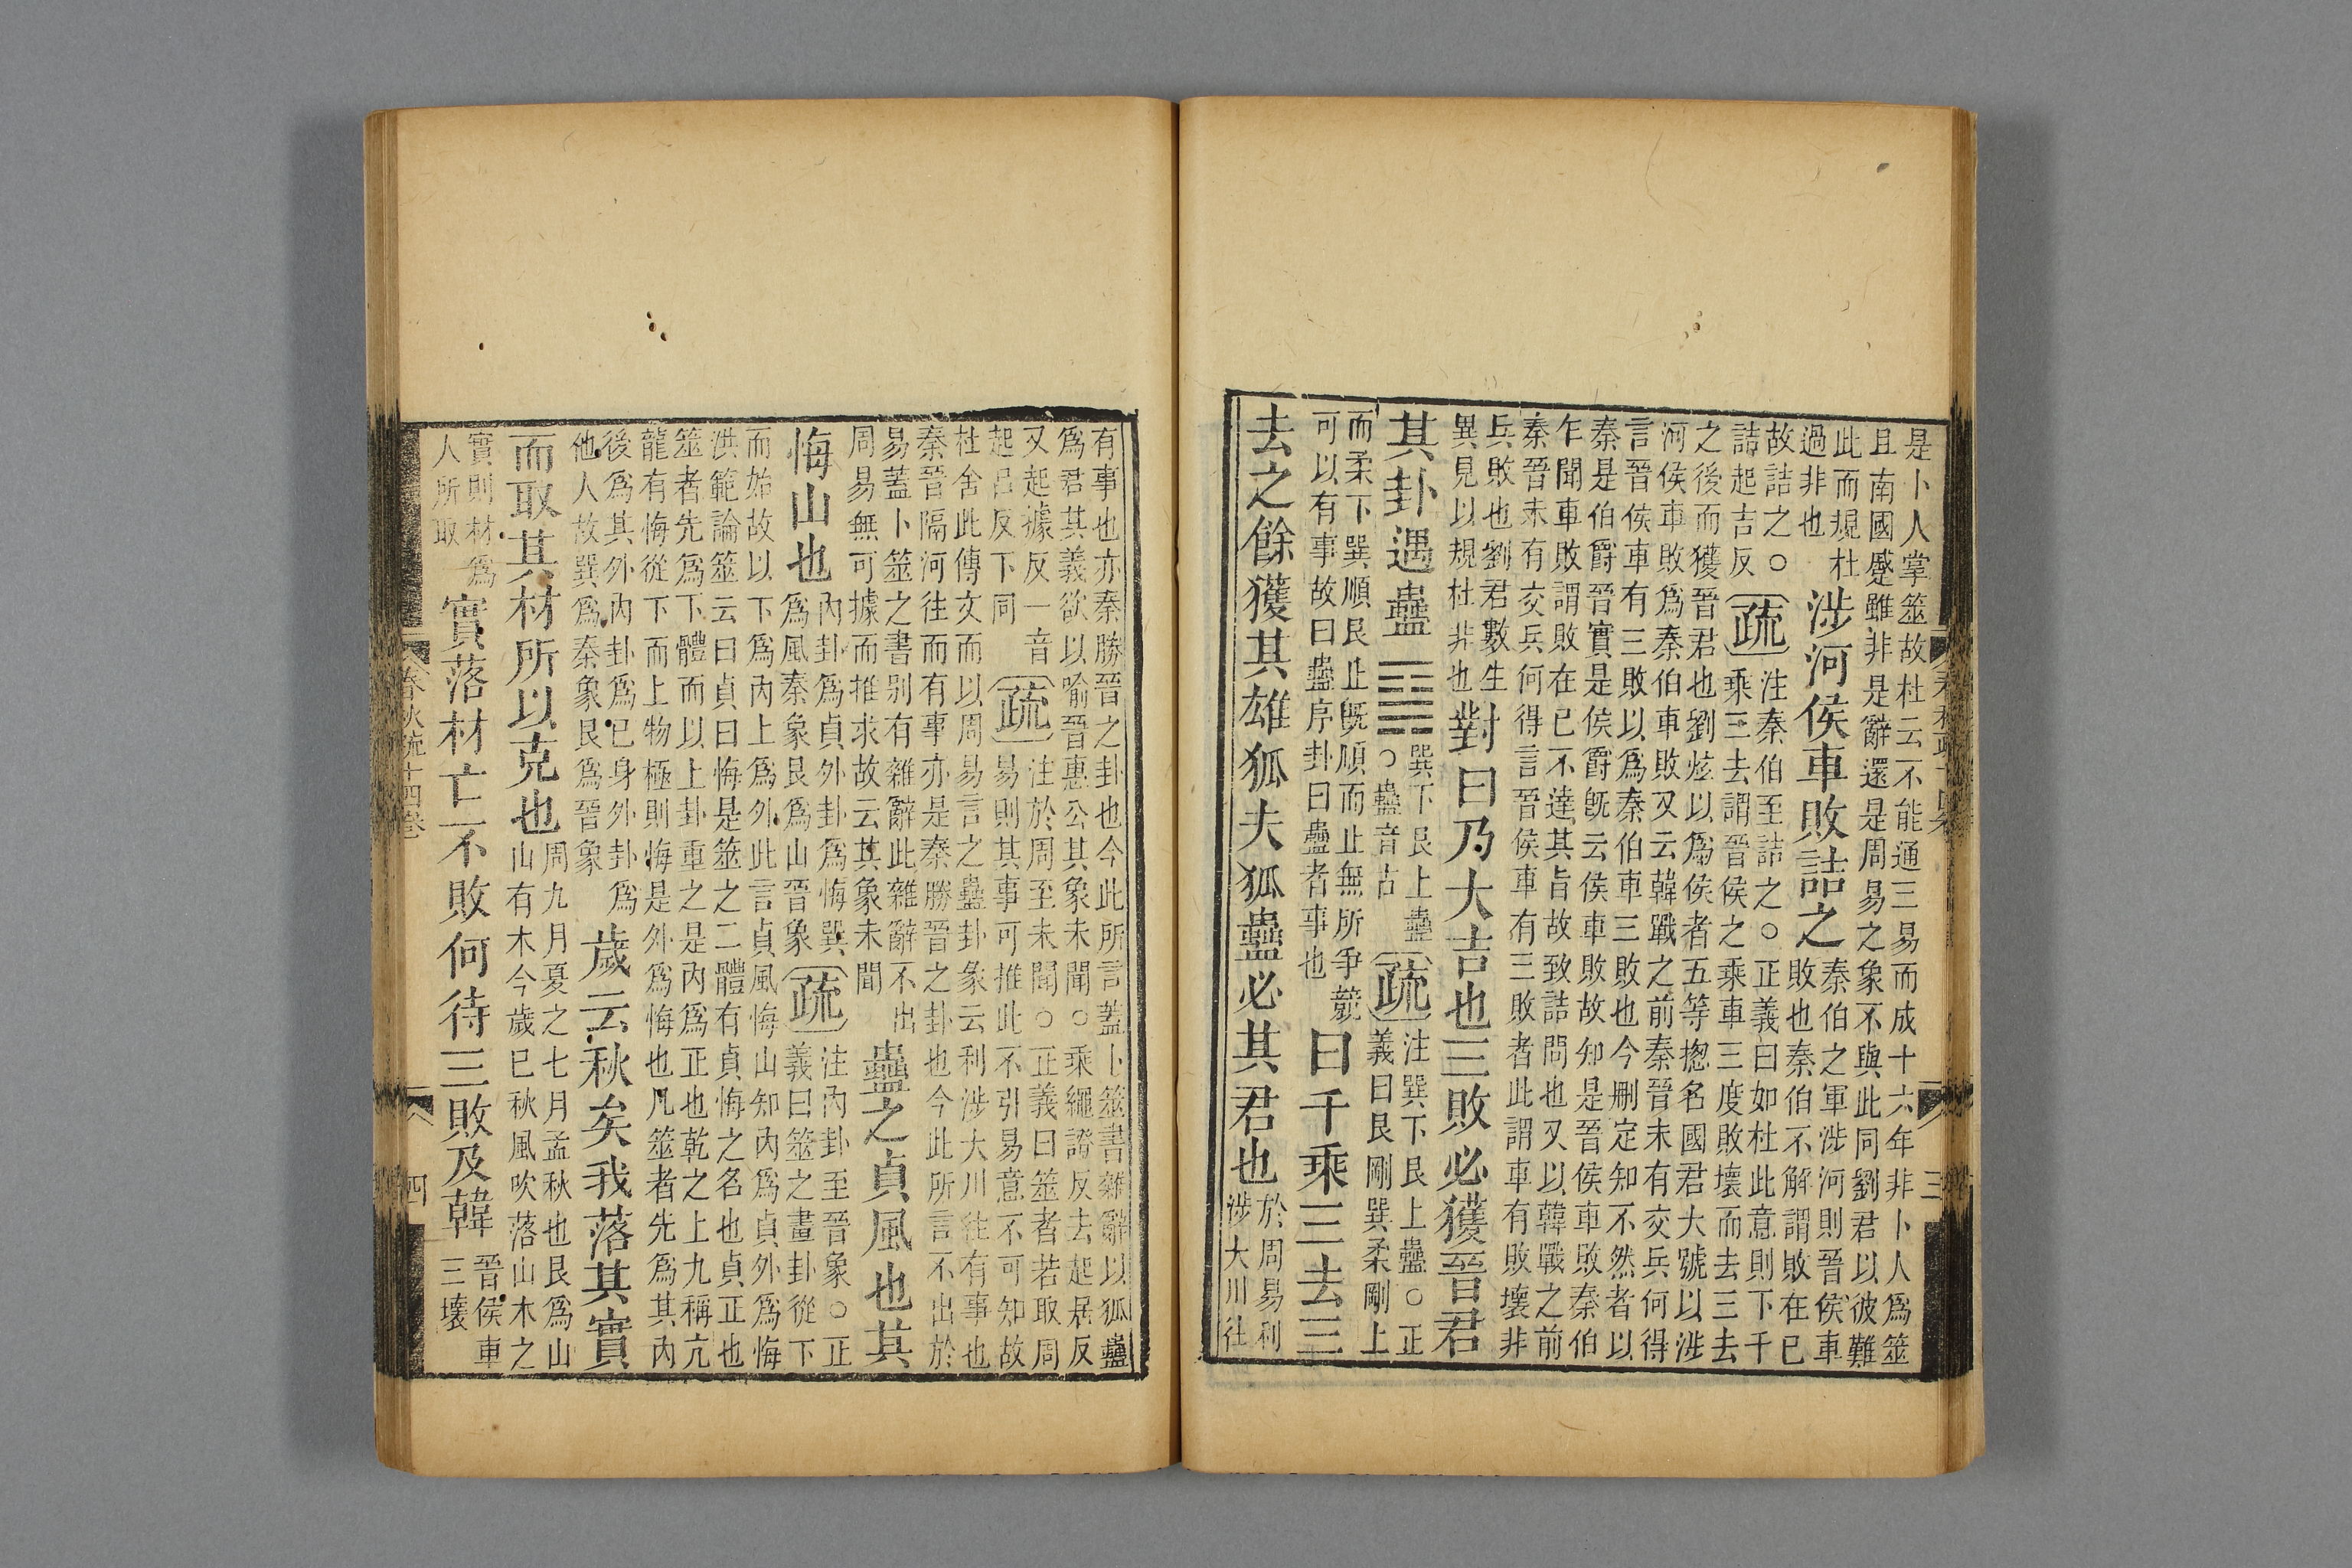 是卜人掌筮故杜云不能通三易而成十六年非卜人爲筮
且南國蹙雖非是辭還是周易之象不與此同劉君以彼難
此而規杜
過非也
涉河侯車敗詰之
秦伯之軍涉河則晉侯車
敗也秦伯不解謂敗在已
故詰之○
詰起吉反
疏
注秦伯至詰之○正義曰如杜此意則下千
乘三去謂晉侯之乘車三度敗壞而去三去
之後而獲晉君也劉炫以爲侯者五等揔名國君大號以涉
河侯車敗爲秦伯車敗又云韓戰之前秦晉未有交兵何得
言晉侯車有三敗以爲秦伯車三敗也今刪定知不然者以
秦是伯爵晉實是侯爵旣云侯車敗故知是晉侯車敗秦伯
乍聞車敗謂敗在已不達其旨故致詰問也又以韓戰之前
秦晉未有交兵何得言晉侯車有三敗者此謂車有敗壞非
兵敗也劉君數生
異見以規杜非也
對曰乃大吉也三敗必獲晉君
其卦遇蠱䷑
巽下艮上蠱
○蠱音古
疏
注巽下艮上蠱○正
義曰艮剛巽柔剛上
而柔下巽順艮止旣順而止無所爭競
可以有事故曰蠱序卦曰蠱者事也
曰千乘三去三
去之餘獲其雄狐夫狐蠱必其君也
於周易利
涉大川往
三
有事也亦秦勝晉之卦也今此所言蓋卜筮書雜辭以狐蠱
爲君其義欲以喻晉惠公其象未聞○乘繩證反去起居反
又起據反一音
起呂反下同
疏
注於周至未聞○正義曰筮者若取周
易則其事可推此不引易意不可知故
杜舍此傳文而以周易言之蠱卦彖云利涉大川往有事也
秦晉隔河往而有事亦是秦勝晉之卦也今此所言不出於
易蓋卜筮之書别有雜辭此雜辭不出
周易無可據而推求故云其象未聞
蠱之貞風也其
悔山也
內卦爲貞外卦爲悔巽
爲風秦象艮爲山晉象
疏
注內卦至晉象○正
義曰筮之畫卦從下
而始故以下爲內上爲外此言貞風悔山知內爲貞外爲悔
洪範論筮云曰貞曰悔是筮之二體有貞悔之名也貞正也
筮者先爲下體而以上卦重之是內爲正也乾之上九稱亢
龍有悔從下而上物極則悔是外爲悔也凡筮者先爲其內
後爲其外內卦爲已身外卦爲
他人故巽爲秦象艮爲晉象
歲云秋矣我落其實
而取其材所以克也
周九月夏之七月孟秋也艮爲山
山有木今歲已秋風吹落山木之
實則材爲
人所取
實落材亡不敗何待三敗及韓
晉侯車
三壞
春秋疏十四卷
四